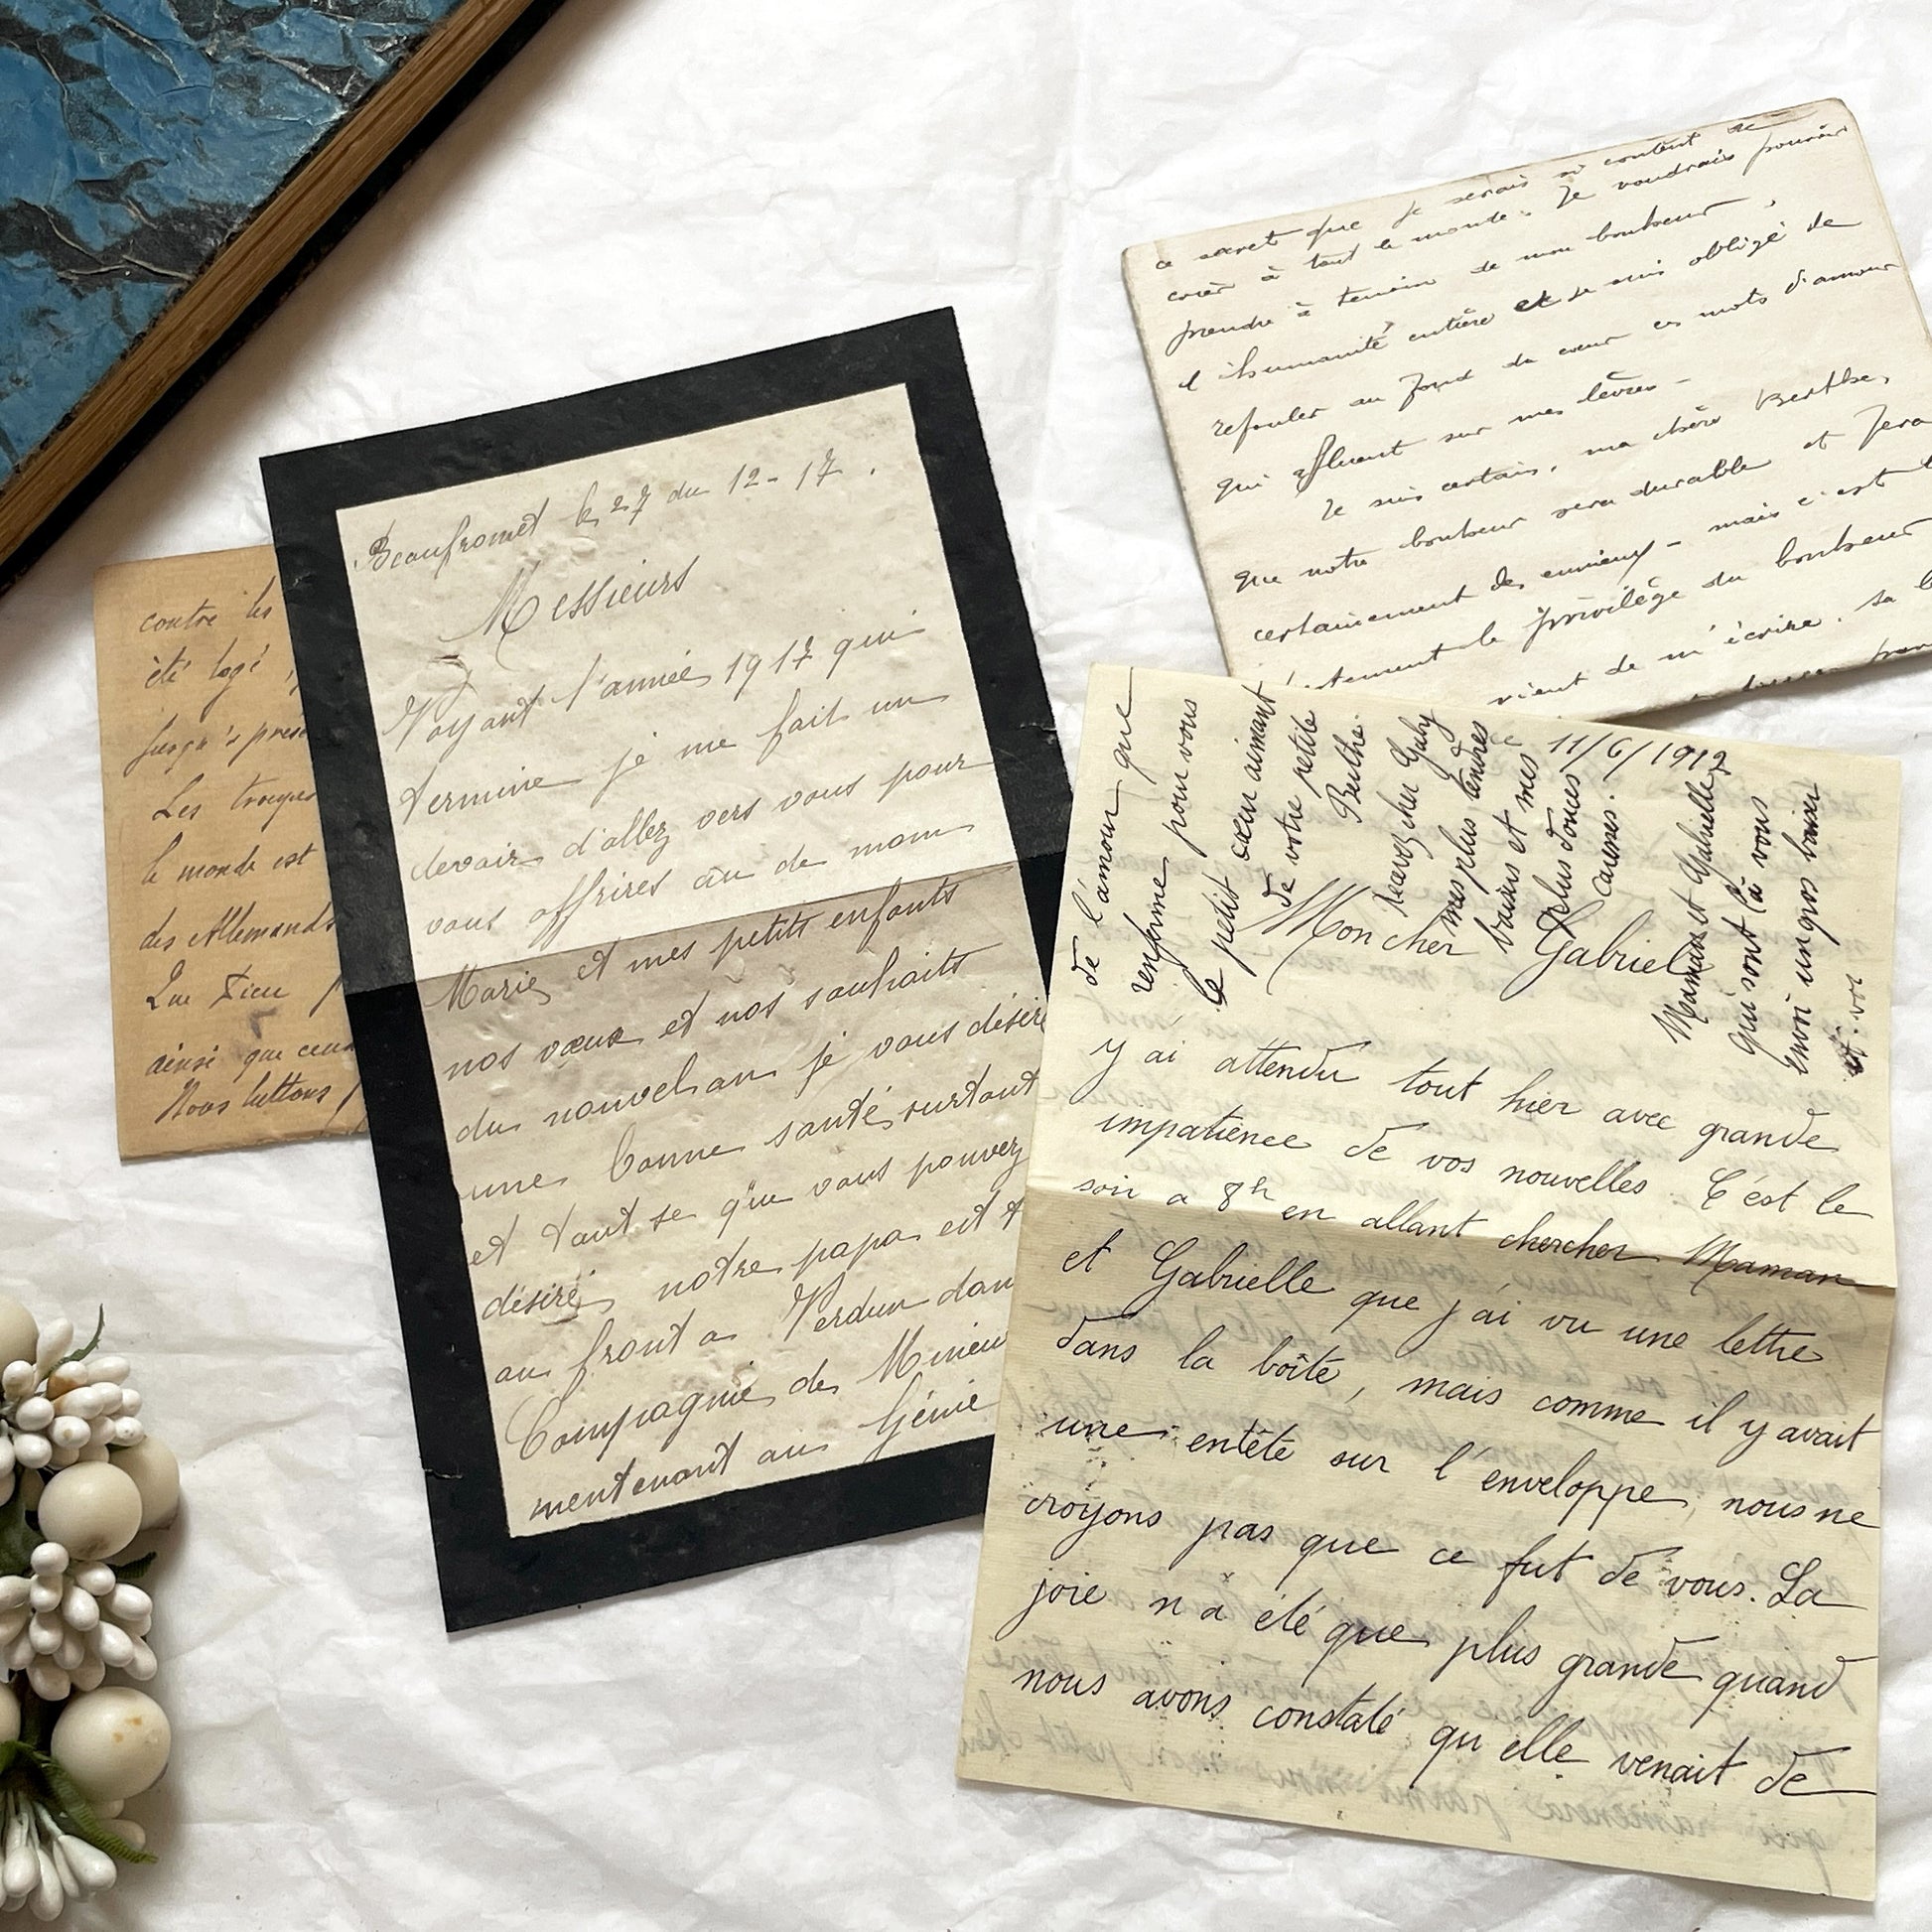 contre les
été logé
jusqu'à prés
Les troupes
le monde est
des Allemands
Que Dieu
ainsi que ceux
Nous luttons
Beaufromet le 27 du 12-17.
Messieurs
Voyant l'année 1917 qui
termine je me fait un
devoir d'allez vers vous pour
vous offrires au de mom
Marie et mes petits enfants
nos vœux et nos souhaits
du nouvel an je vous désire
une bonne santé surtout
et tout se que vous pouvez
désiré notre papa est
au front a Verdun dan
Compagnie de Mineu
mentenant au Génie
ce secret que je serais si content de
crier à tout le monde. Je voudrais pouvoir
prendre à témoin de mon bonheur,
l'humanité entière et je suis obligé de
refouler au fond du cœur ces mots d'amour
qui affluent sur mes lèvres -
Je suis certain, ma chère Berthe,
que notre bonheur sera durable et fera
certainement des envieux - mais c'est
justement le privilège du bonheur
vient de m'écrire. Sa
11/6/1917
Mon cher Gabriel
J'ai attendu tout hier avec grande
impatience de vos nouvelles. C'est le
soir a 8h en allant chercher Maman
et Gabrielle que j'ai vu une lettre
dans la boîte, mais comme il y avait
une entête sur l'enveloppe, nous ne
croyons pas que ce fut de vous. La
joie n'a été que plus grande quand
nous avons constaté qu'elle venait de
de l'amour que
renferme pour vous
le petit cœur aimant
de votre petite
Berthe.
Recevez cher Gaby
mes plus tendres
baisers et mes
plus douces
caresses.
Maman et Gabrielle
qui sont là vous
envoi un gos baiser